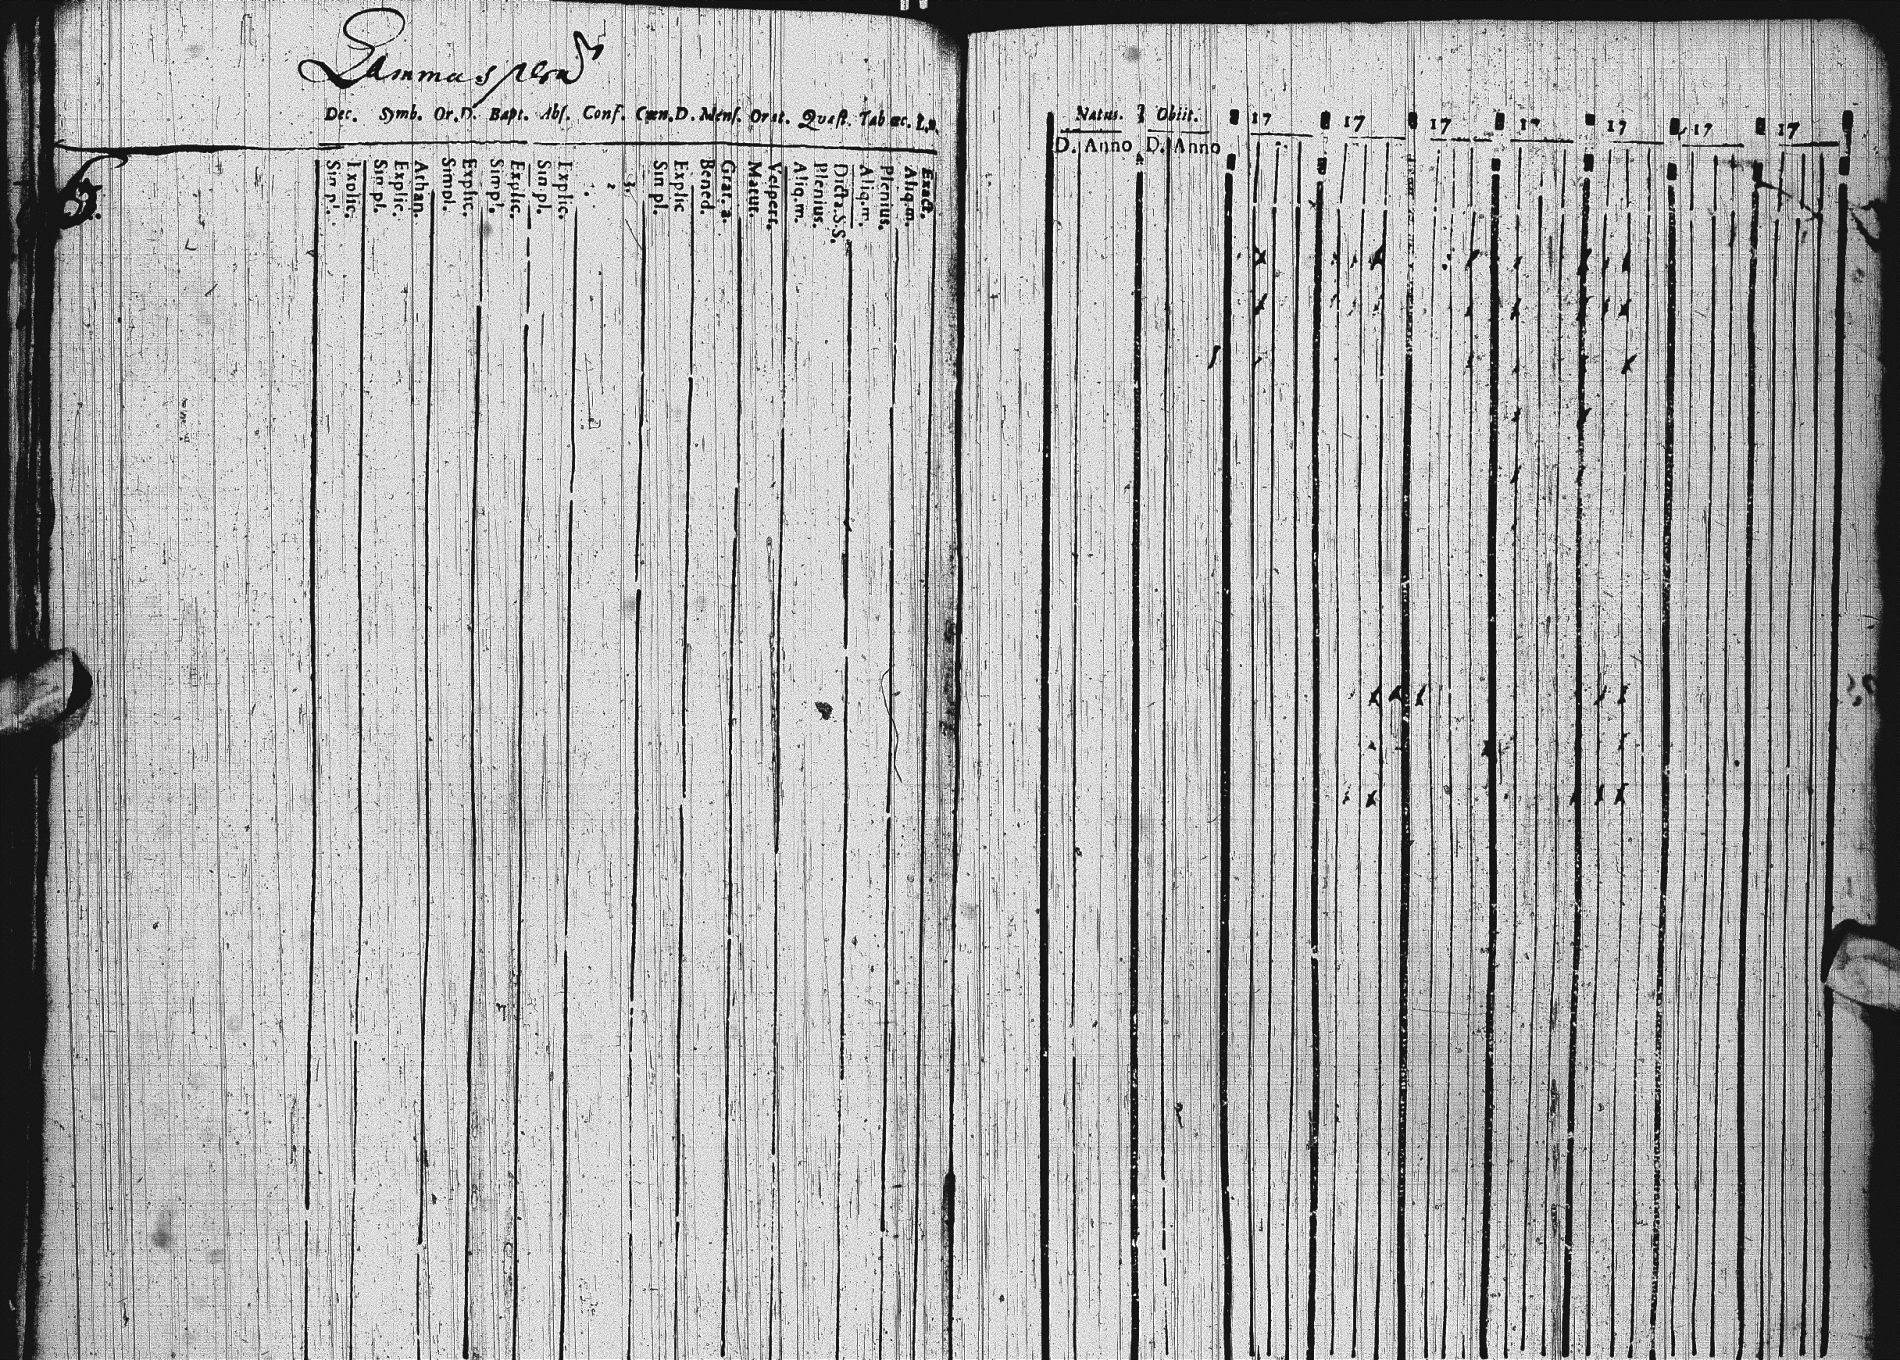 Dec. Symb. Or. D. Bapt. Abs. Conf. Cœn. D. Mens. Orat. Quæst. Tab æc. L.n.
Sim pl. Explic. Sim pl. Explic. Athan. Simpl. Explic. Simpl. Explic. Sim pl. Explic. 2. 3. Sim pl. Explic Bened. Grat. a. Matut. Vespert. Aliq.m. Plenius. Dicta.S.S. Aliq.m. Plenius. Aliq.m. Exact.
6.
Natus. Obiit. 17 17 17 17 17 17 17
D. Anno D. Anno